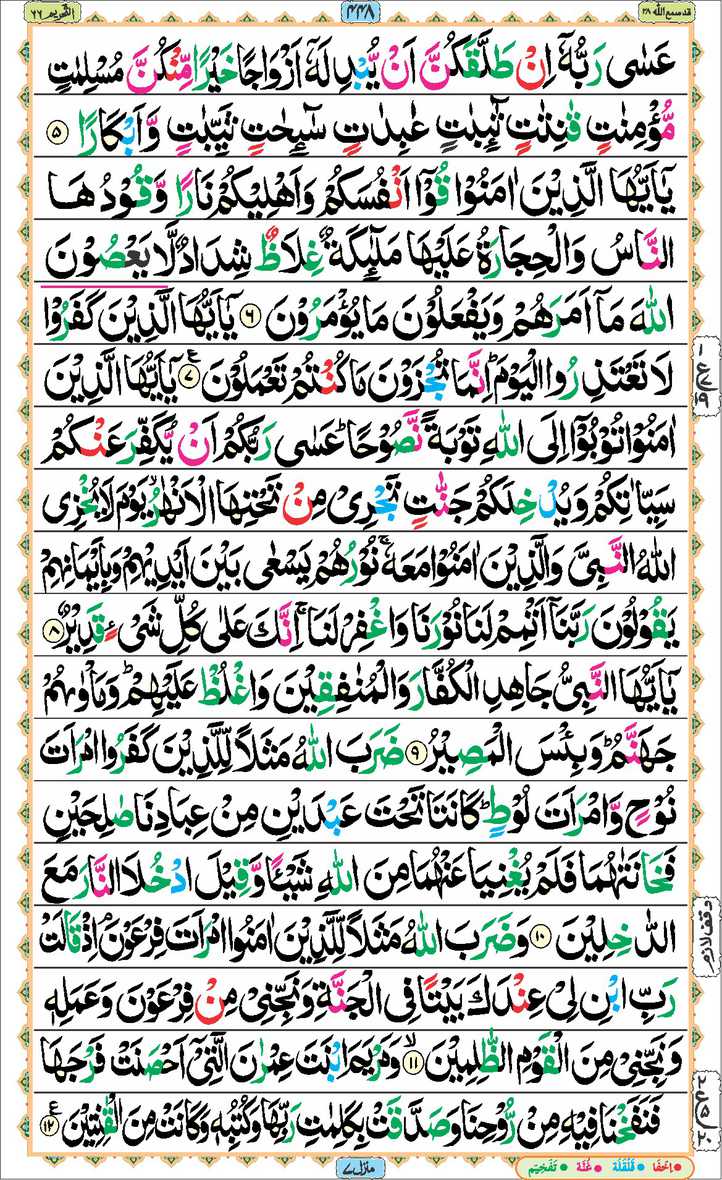 قدسمع الله ۲۸
۴۴۸
التحریم ۶۶
عَسٰی رَبُّهٗۤ اِنْ طَلَّقَكُنَّ اَنْ یُّبْدِلَهٗۤ اَزْوَاجًا خَیْرًا مِّنْكُنَّ مُسْلِمٰتٍ
مُّؤْمِنٰتٍ قٰنِتٰتٍ تٰٓىِٕبٰتٍ عٰبِدٰتٍ سٰٓىِٕحٰتٍ ثَیِّبٰتٍ وَّاَبْكَارًا ۵
یٰۤاَیُّهَا الَّذِیْنَ اٰمَنُوْا قُوْۤا اَنْفُسَكُمْ وَاَهْلِیْكُمْ نَارًا وَّقُوْدُهَا
النَّاسُ وَالْحِجَارَةُ عَلَیْهَا مَلٰٓىِٕكَةٌ غِلَاظٌ شِدَادٌ لَّا یَعْصُوْنَ
اللّٰهَ مَاۤ اَمَرَهُمْ وَیَفْعَلُوْنَ مَا یُؤْمَرُوْنَ ۶ یٰۤاَیُّهَا الَّذِیْنَ كَفَرُوْا
لَا تَعْتَذِرُوا الْیَوْمَ ؕ اِنَّمَا تُجْزَوْنَ مَا كُنْتُمْ تَعْمَلُوْنَ ۷ ع یٰۤاَیُّهَا الَّذِیْنَ
اٰمَنُوْا تُوْبُوْۤا اِلَی اللّٰهِ تَوْبَةً نَّصُوْحًا ؕ عَسٰی رَبُّكُمْ اَنْ یُّكَفِّرَ عَنْكُمْ
سَیِّاٰتِكُمْ وَیُدْخِلَكُمْ جَنّٰتٍ تَجْرِیْ مِنْ تَحْتِهَا الْاَنْهٰرُ ۙ یَوْمَ لَا یُخْزِی
اللّٰهُ النَّبِیَّ وَالَّذِیْنَ اٰمَنُوْا مَعَهٗ ۚ نُوْرُهُمْ یَسْعٰی بَیْنَ اَیْدِیْهِمْ وَبِاَیْمَانِهِمْ
یَقُوْلُوْنَ رَبَّنَاۤ اَتْمِمْ لَنَا نُوْرَنَا وَاغْفِرْ لَنَا ۚ اِنَّكَ عَلٰی كُلِّ شَیْءٍ قَدِیْرٌ ۸
یٰۤاَیُّهَا النَّبِیُّ جَاهِدِ الْكُفَّارَ وَالْمُنٰفِقِیْنَ وَاغْلُظْ عَلَیْهِمْ ؕ وَمَاْوٰىهُمْ
جَهَنَّمُ ؕ وَبِئْسَ الْمَصِیْرُ ۹ ضَرَبَ اللّٰهُ مَثَلًا لِّلَّذِیْنَ كَفَرُوا امْرَاَتَ
نُوْحٍ وَّامْرَاَتَ لُوْطٍ ؕ كَانَتَا تَحْتَ عَبْدَیْنِ مِنْ عِبَادِنَا صَالِحَیْنِ
فَخَانَتٰهُمَا فَلَمْ یُغْنِیَا عَنْهُمَا مِنَ اللّٰهِ شَیْـًٔا وَّقِیْلَ ادْخُلَا النَّارَ مَعَ
الدّٰخِلِیْنَ ۱۰ وَضَرَبَ اللّٰهُ مَثَلًا لِّلَّذِیْنَ اٰمَنُوا امْرَاَتَ فِرْعَوْنَ ۘ اِذْ قَالَتْ
رَبِّ ابْنِ لِیْ عِنْدَكَ بَیْتًا فِی الْجَنَّةِ وَنَجِّنِیْ مِنْ فِرْعَوْنَ وَعَمَلِهٖ
وَنَجِّنِیْ مِنَ الْقَوْمِ الظّٰلِمِیْنَ ۱۱ ۙ وَمَرْیَمَ ابْنَتَ عِمْرٰنَ الَّتِیْۤ اَحْصَنَتْ فَرْجَهَا
فَنَفَخْنَا فِیْهِ مِنْ رُّوْحِنَا وَصَدَّقَتْ بِكَلِمٰتِ رَبِّهَا وَكُتُبِهٖ وَكَانَتْ مِنَ الْقٰنِتِیْنَ ۱۲ ع
وقف لازم
منزل ۷
اِخْفَا قَلْقَلَة غُنَّة تَفْخِیْم